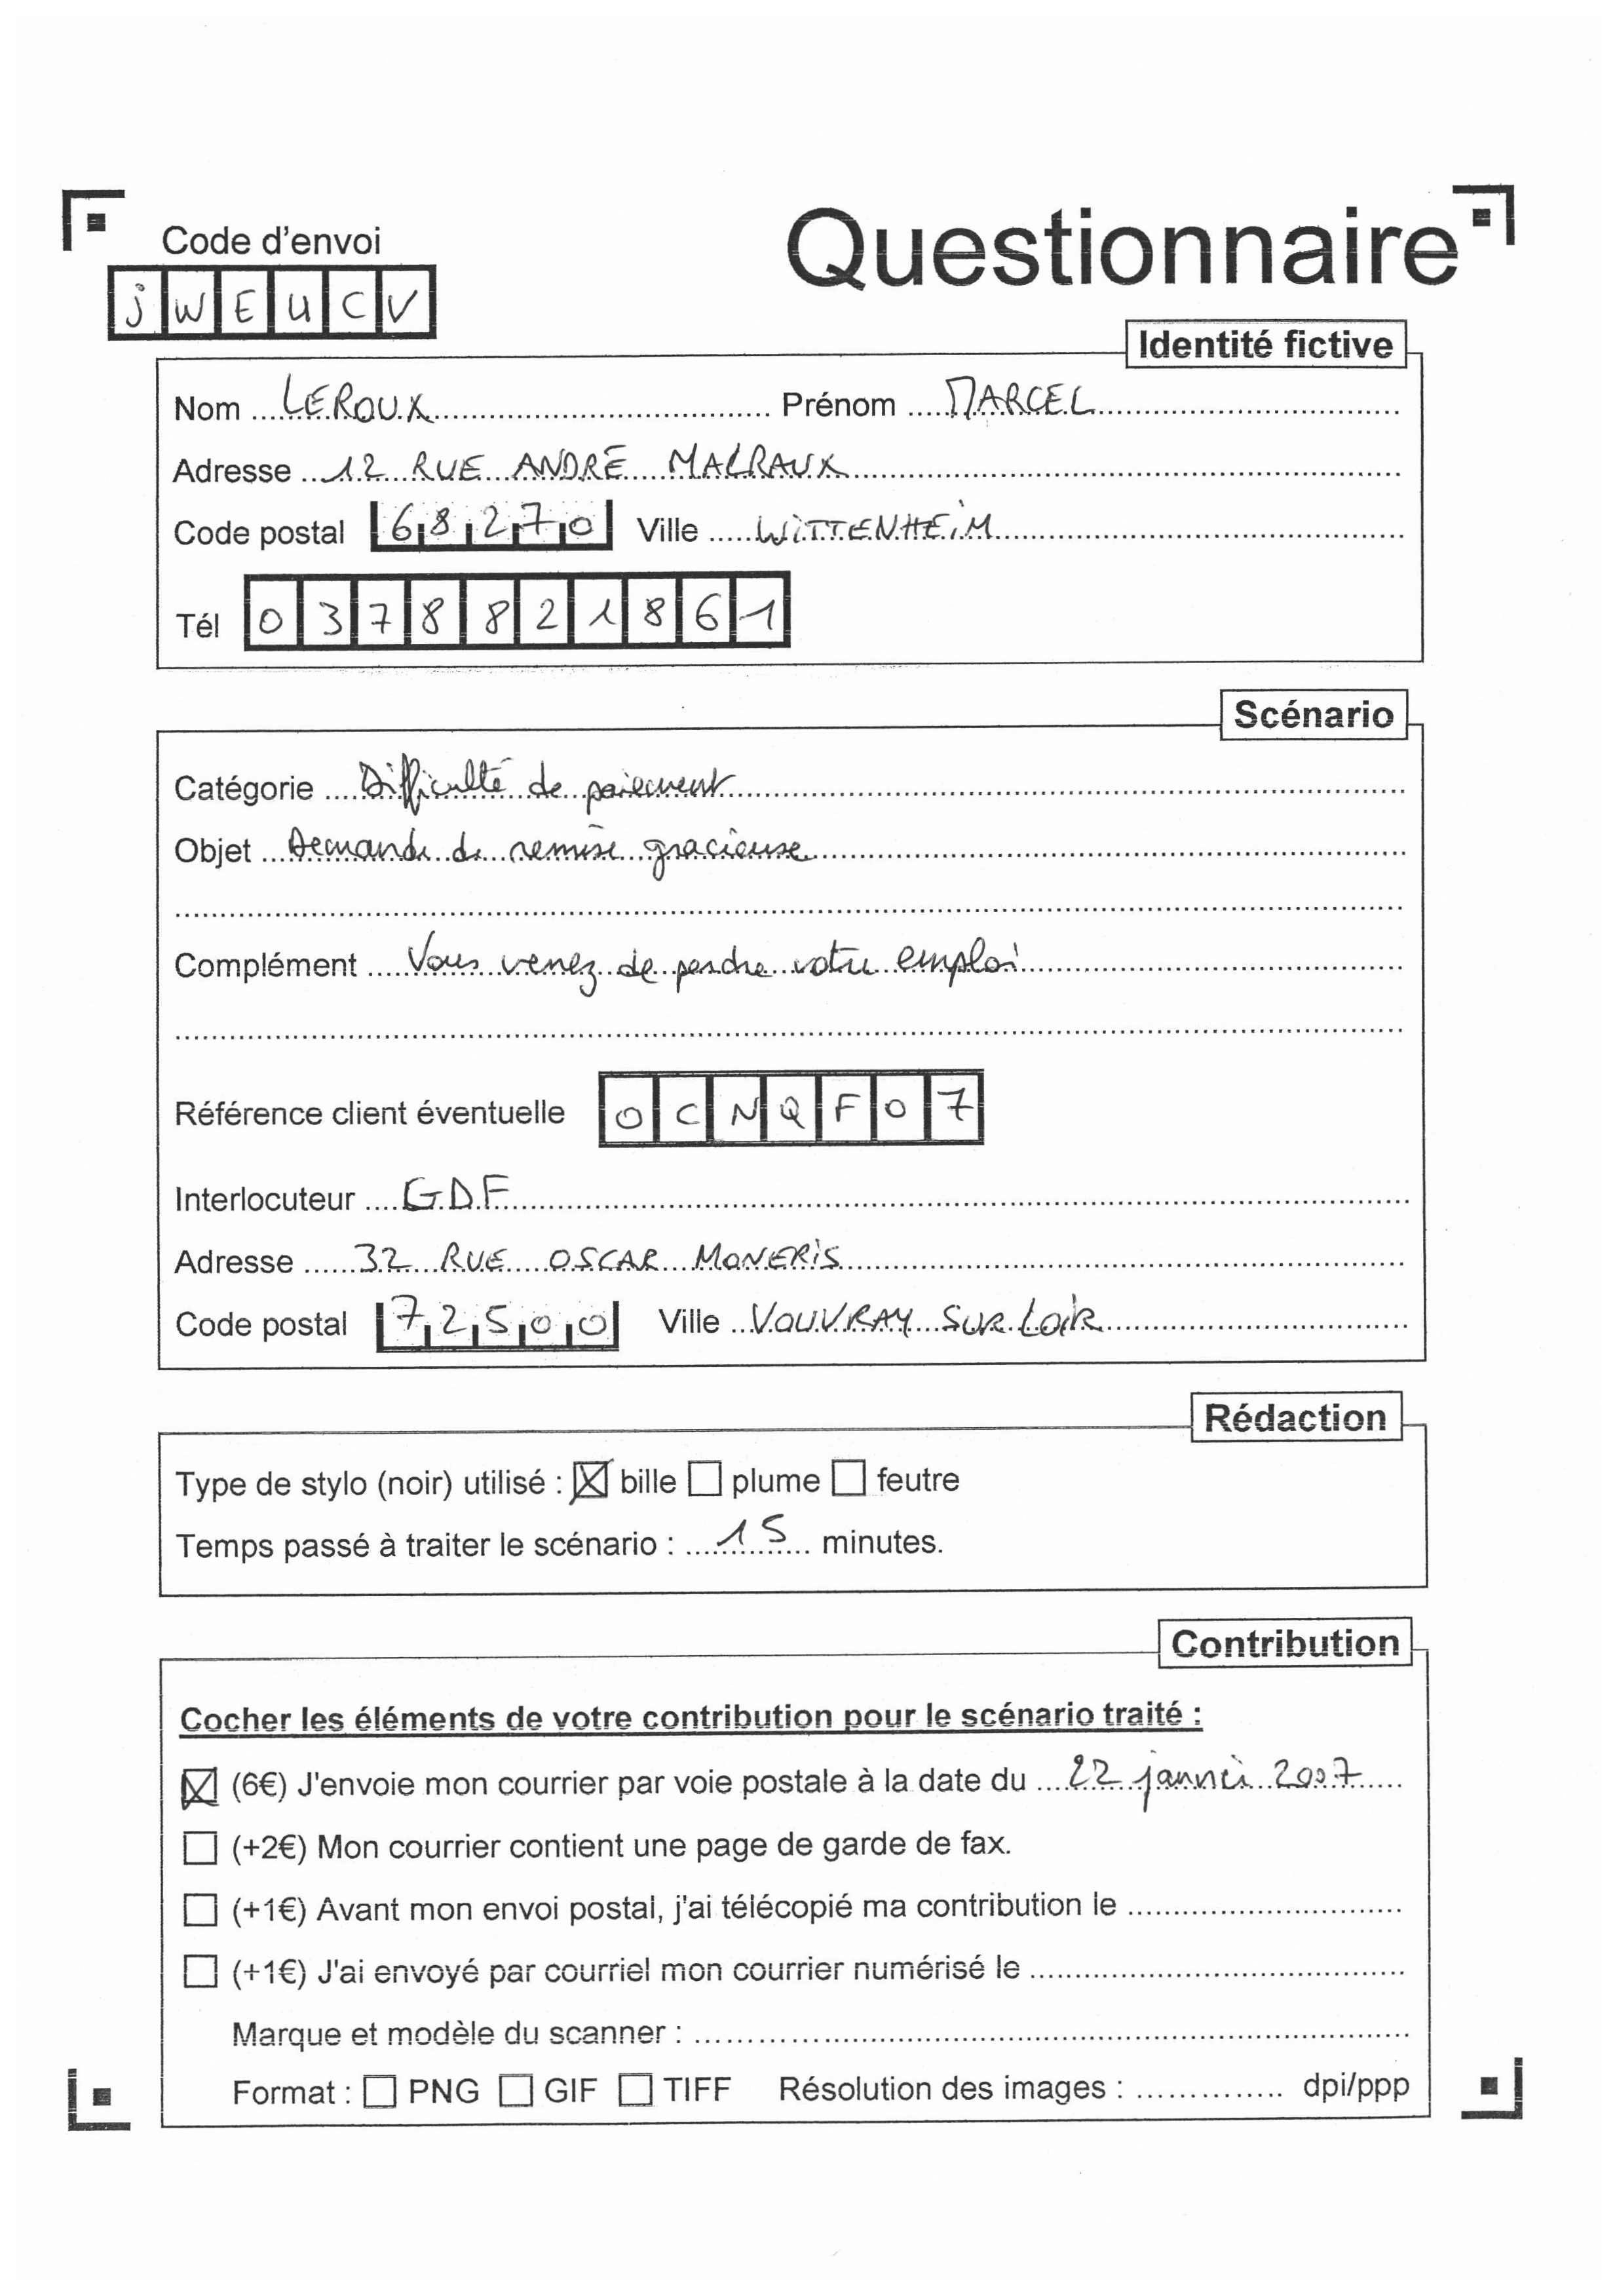 Code d'envoi
Questionnaire
jWEUCV
Identité fictive
Nom LEROUX Prénom MARCEL
Adresse 12 RUE ANDRÉ MALRAUX
Code postal 68270 Ville WITTENHEIM
Tél 0378821861
Scénario
Catégorie Difficulté de paiement
Objet Demande de remise gracieuse
Complément Vous venez de perdre votre emploi
Référence client éventuelle OCNQF07
Interlocuteur GDF
Adresse 32 RUE OSCAR MONERIS
Code postal 72500 Ville VOUVRAY SUR LOIR
Rédaction
Type de stylo (noir) utilisé : ☒ bille ☐ plume ☐ feutre
Temps passé à traiter le scénario : 15 minutes.
Contribution
Cocher les éléments de votre contribution pour le scénario traité :
☒ (6€) J'envoie mon courrier par voie postale à la date du 22 janvier 2007
☐ (+2€) Mon courrier contient une page de garde de fax.
☐ (+1€) Avant mon envoi postal, j'ai télécopié ma contribution le
☐ (+1€) J'ai envoyé par courriel mon courrier numérisé le
Marque et modèle du scanner :
Format : ☐ PNG ☐ GIF ☐ TIFF Résolution des images : dpi/ppp